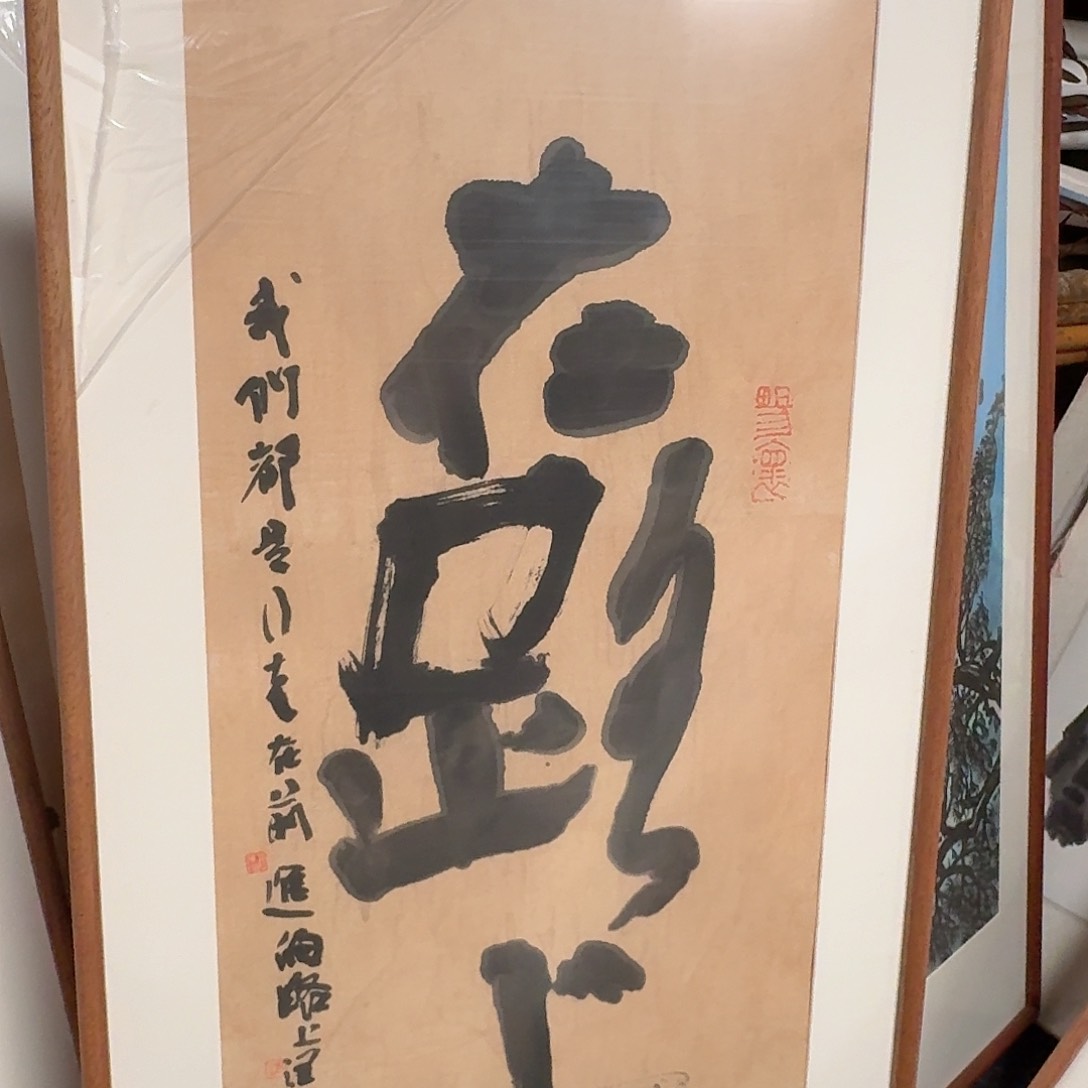 在路上
我們都是行走在前進的路上